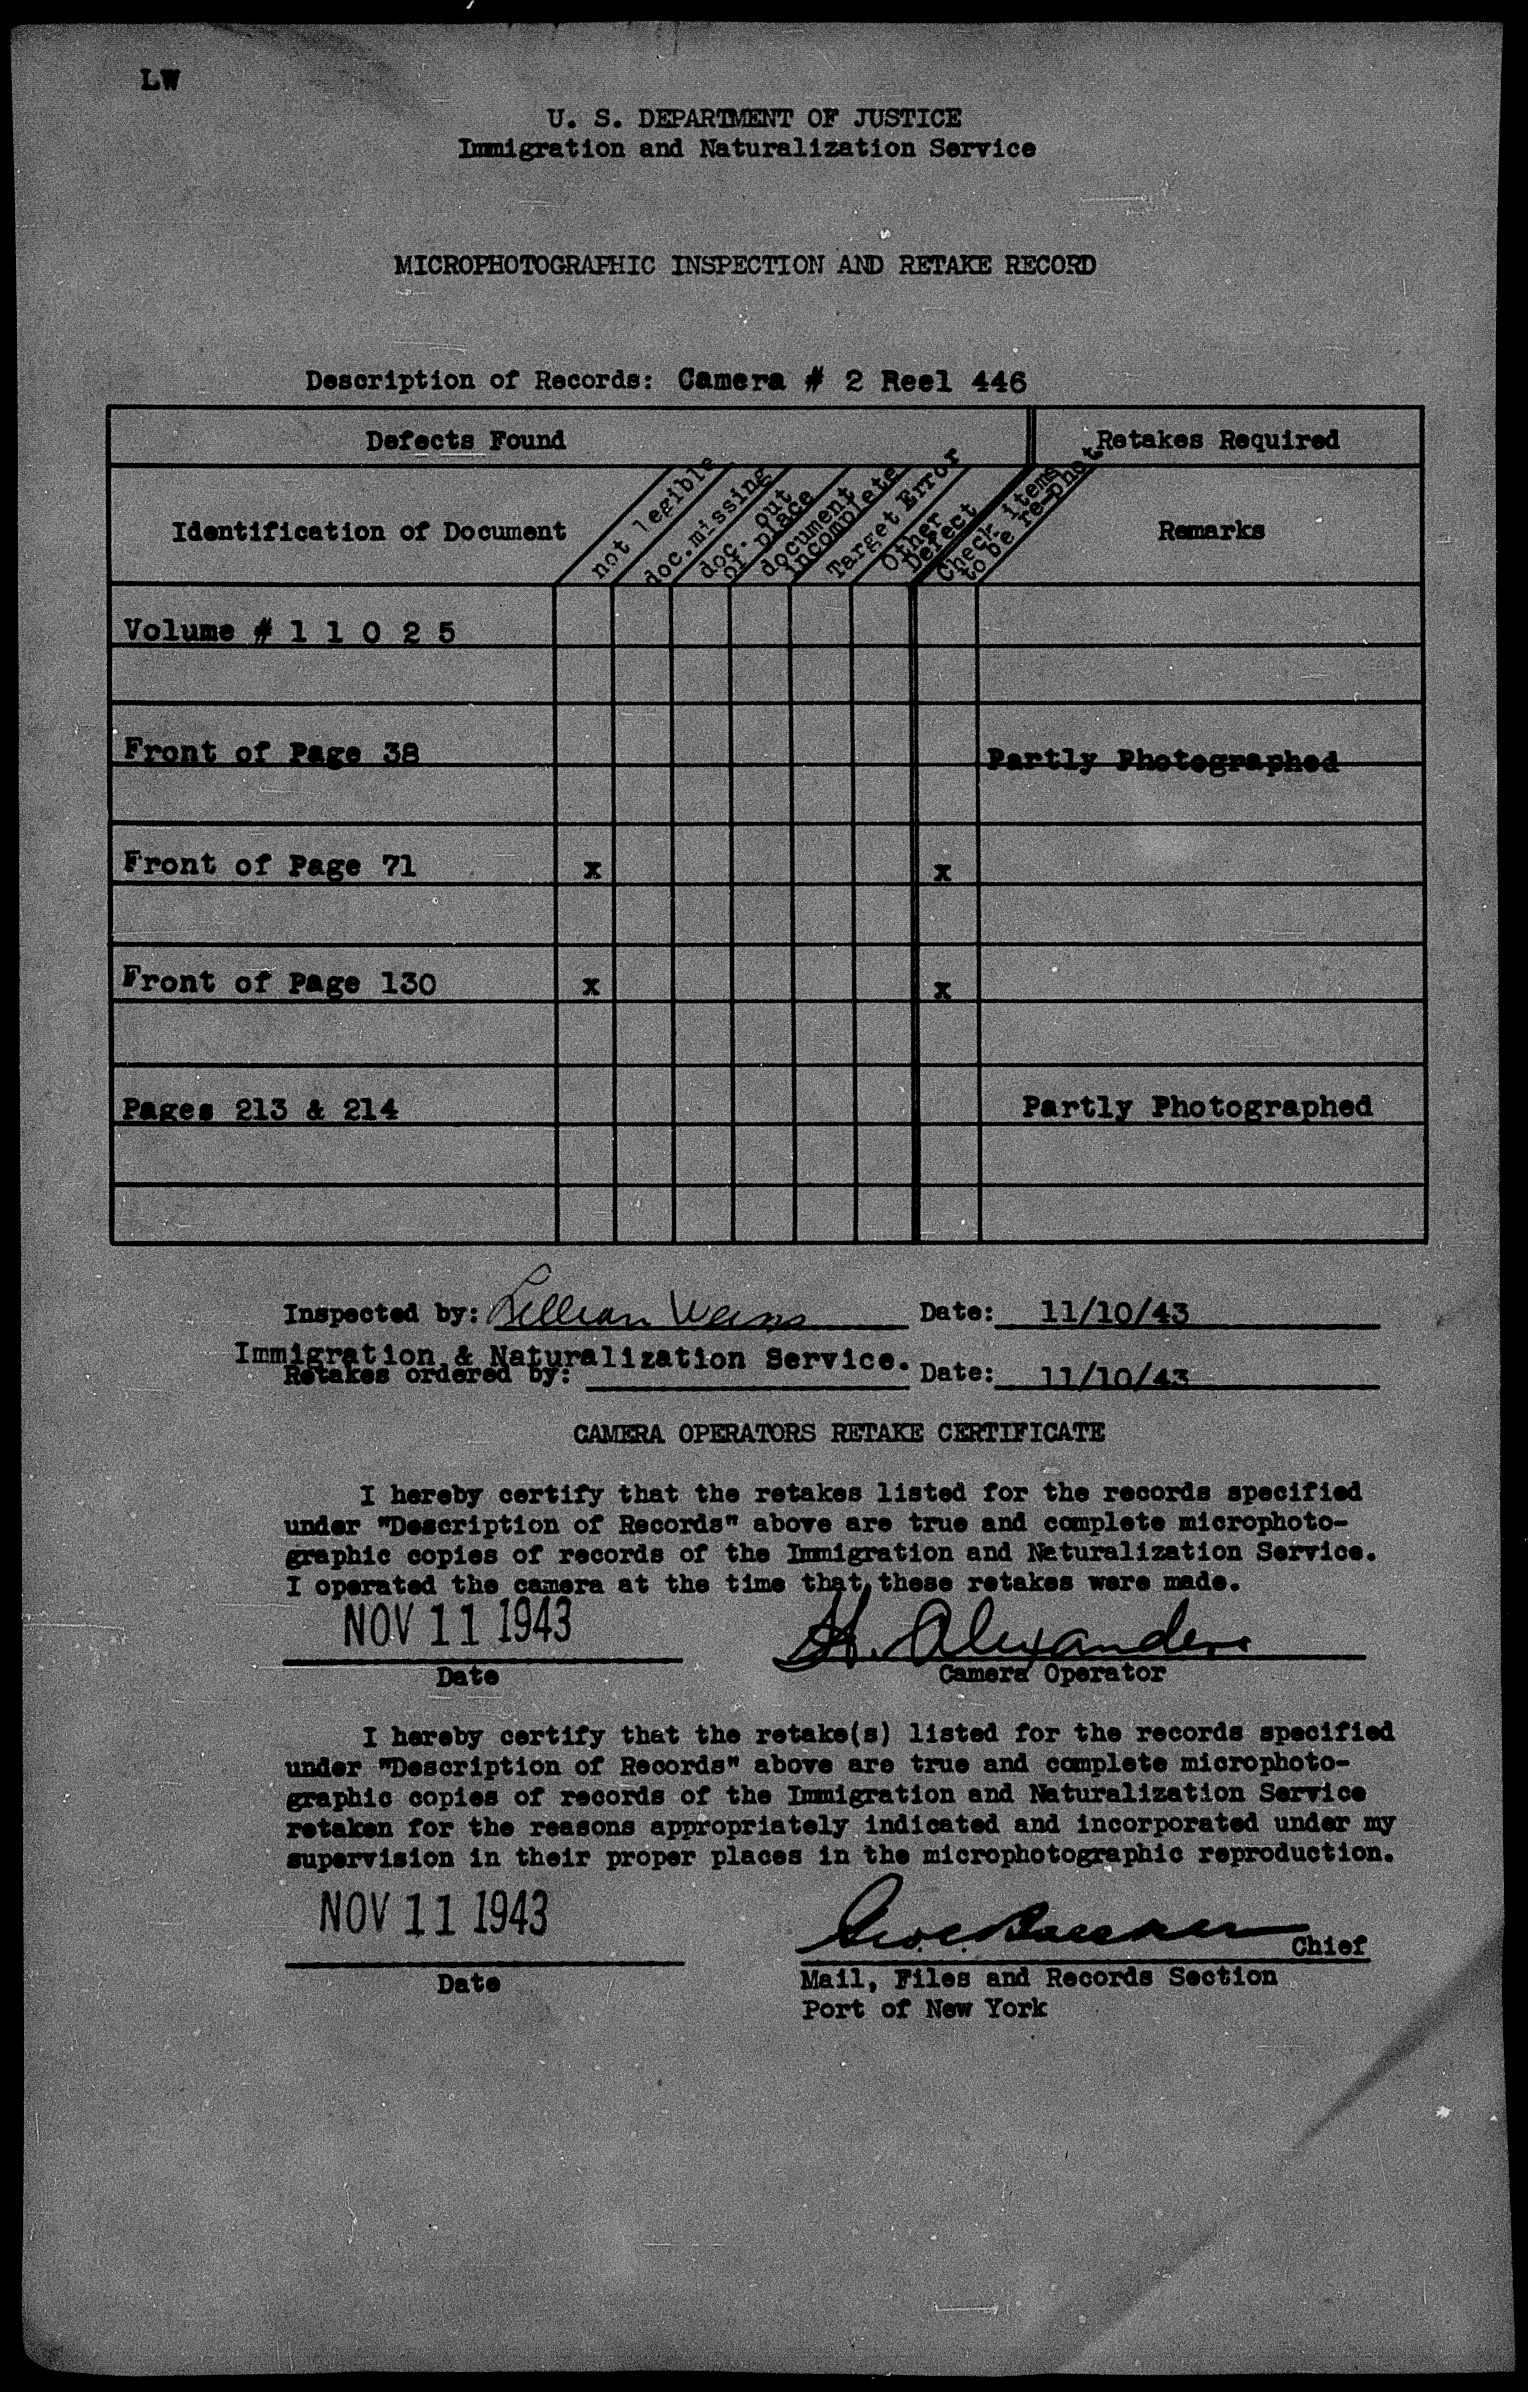 LW
U. S. DEPARTMENT OF JUSTICE
Immigration and Naturalization Service
MICROPHOTOGRAPHIC INSPECTION AND RETAKE RECORD
Description of Records: Camera # 2 Reel 446
Defects Found
Retakes Required
Identification of Document
not legible
doc. missing
doc. out
of place
document
incomplete
Target Error
Other
Defect
Check items
to be re-phot.
Remarks
Volume # 1 1 0 2 5
Front of Page 38
Partly Photographed
Front of Page 71 x x
Front of Page 130 x x
Pages 213 & 214 Partly Photographed
Inspected by: Lillian Weiss Date: 11/10/43
Immigration & Naturalization Service.
Retakes ordered by: Date: 11/10/43
CAMERA OPERATORS RETAKE CERTIFICATE
I hereby certify that the retakes listed for the records specified
under "Description of Records" above are true and complete microphoto-
graphic copies of records of the Immigration and Naturalization Service.
I operated the camera at the time that these retakes were made.
NOV 11 1943 H. Alexander
Date Camera Operator
I hereby certify that the retake(s) listed for the records specified
under "Description of Records" above are true and complete microphoto-
graphic copies of records of the Immigration and Naturalization Service
retaken for the reasons appropriately indicated and incorporated under my
supervision in their proper places in the microphotographic reproduction.
NOV 11 1943
Chief
Date
Mail, Files and Records Section
Port of New York